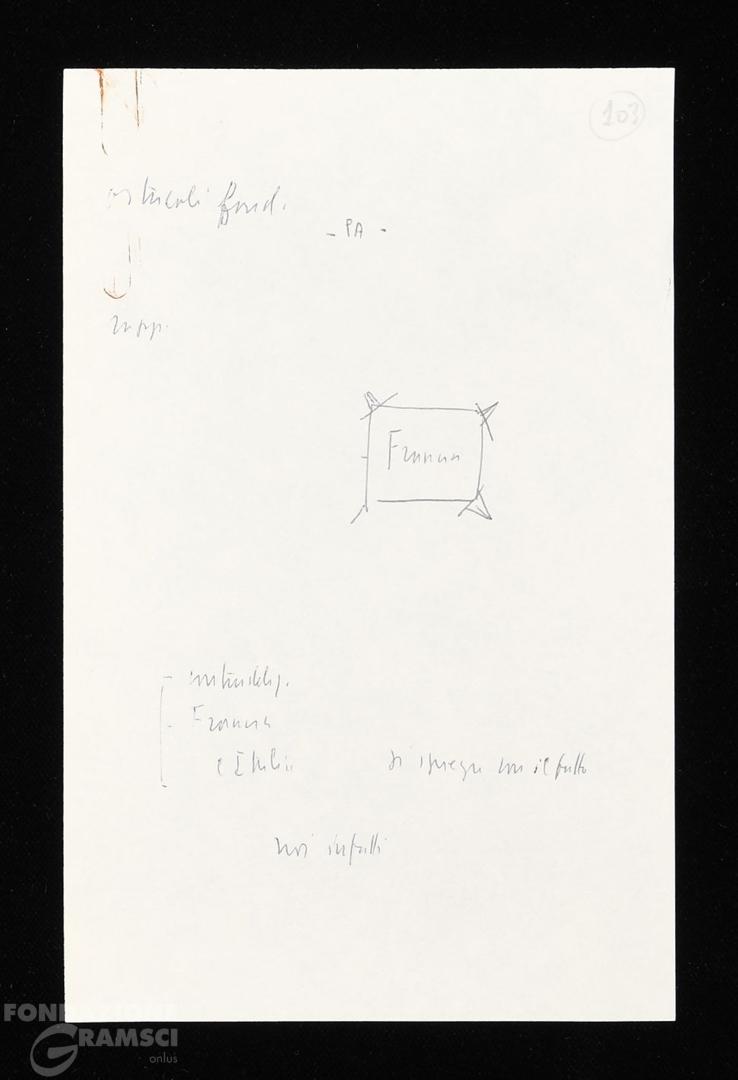 103
articoli fond.
- PA -
rapp.
Francia
- 
- Francia
e Italia
si spiega con il fatto
noi infatti
FONDAZIONE
GRAMSCI
onlus